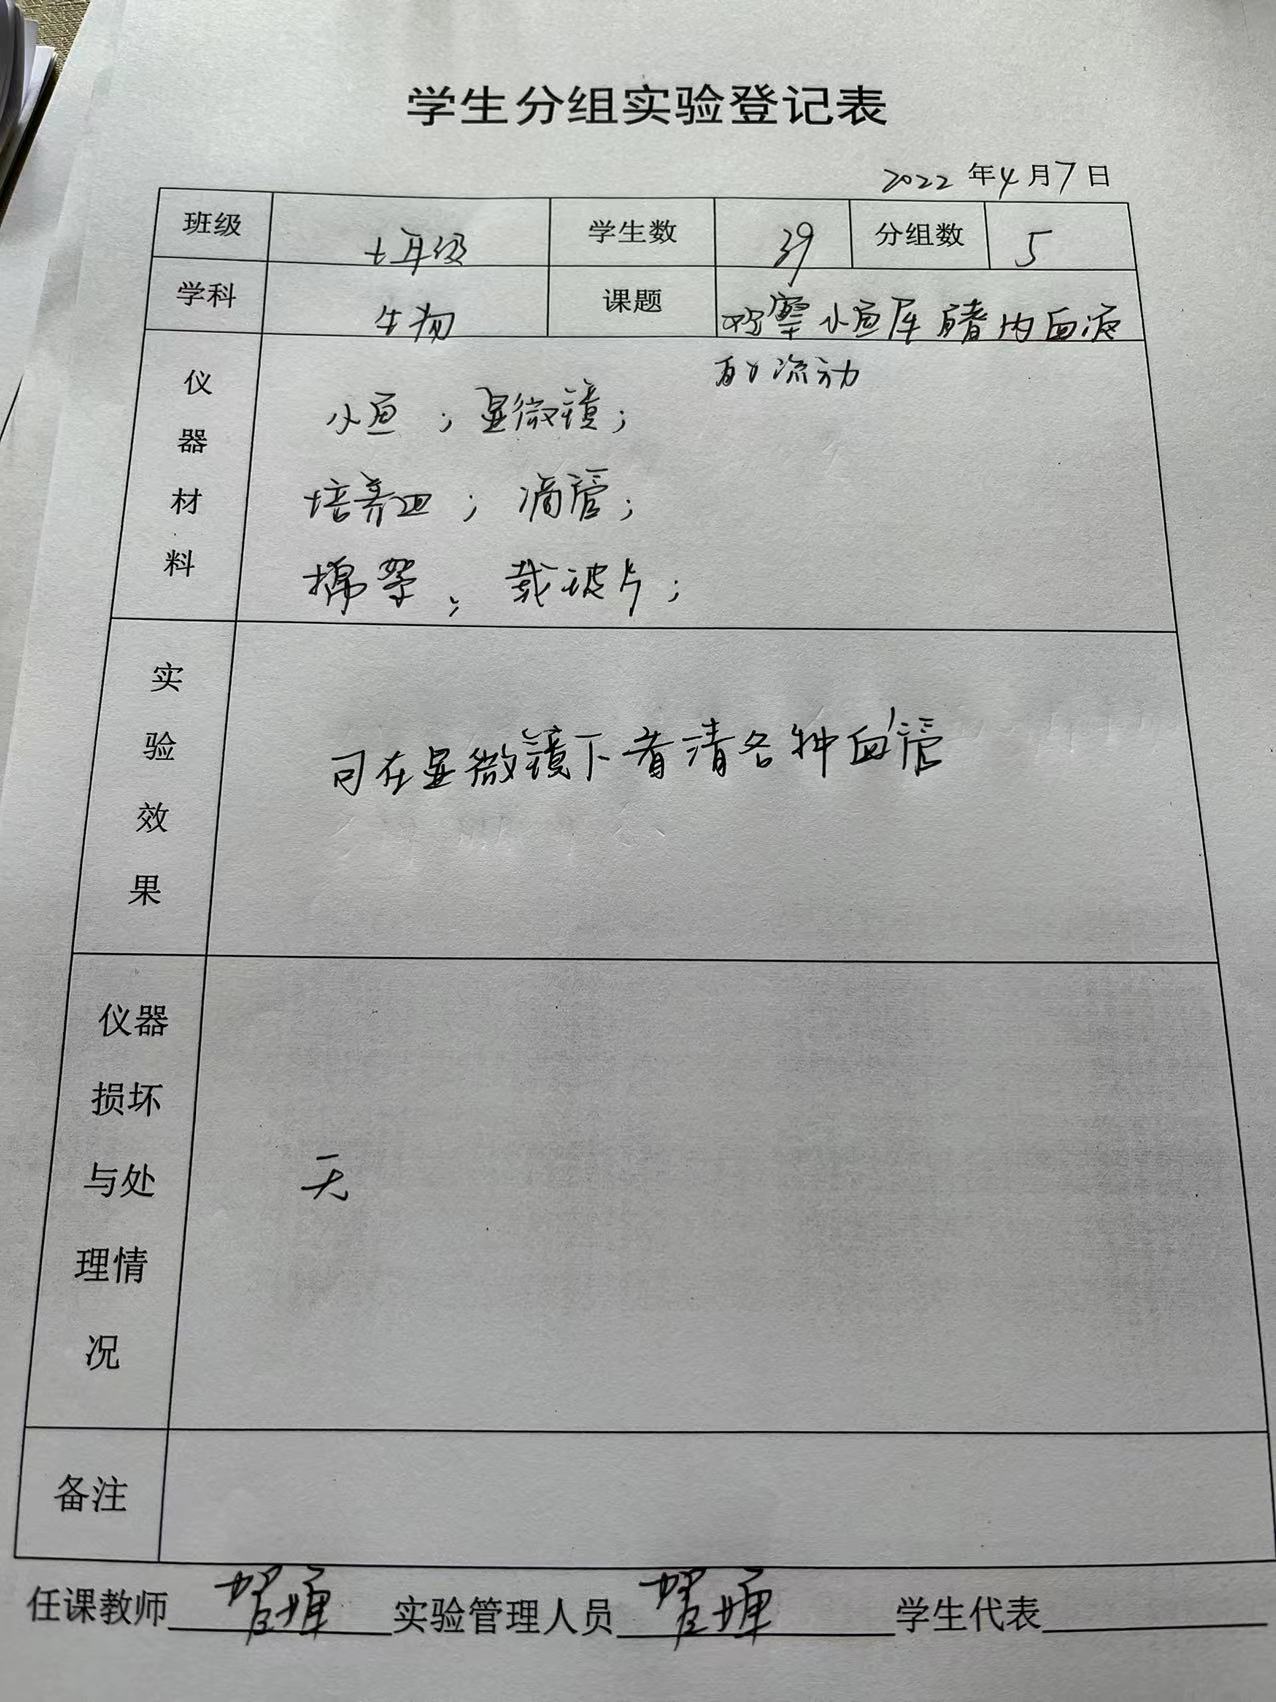 学生分组实验登记表
2022 年 4 月 7 日
班级 七年级 学生数 39 分组数 5
学科 生物 课题 观察小鱼尾鳍内血液
的流动
仪器材料
小鱼；显微镜；
培养皿；滴管；
棉絮；载玻片；
实验效果
可在显微镜下看清各种血管
仪器损坏与处理情况
无
备注
任课教师 实验管理人员 学生代表